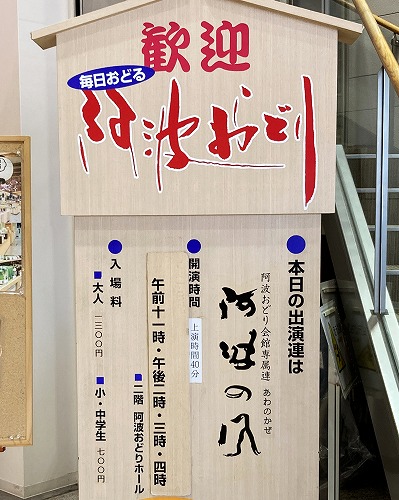 歓迎
毎日おどる
阿波おどり
●本日の出演連は
阿波おどり会館専属連 あわのかぜ
阿波の風
●開演時間
上演時間40分
午前十一時・午後二時・三時・四時
■二階 阿波おどりホール
●入場料
■大人 一三〇〇円
■小・中学生 七〇〇円